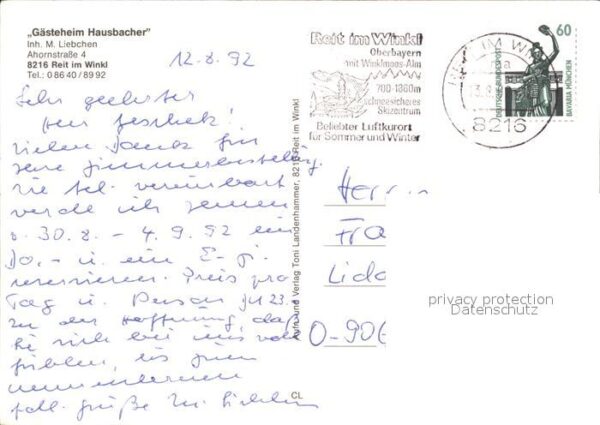 „Gästeheim Hausbacher"
Inh. M. Liebchen
Ahornstraße 4
8216 Reit im Winkl
Tel.: 0 86 40 / 89 92
12.8.92
Sehr geehrter
Herr
vielen Dank für
Wie tel. vereinbart
werde ich Ihnen
v. 30.8. – 4.9.92 ein
Do.- u. ein E-Zi.
reservieren. Preis pro
Tag u. Person
In der Hoffnung, daß
Sie sich bei uns wohl
fühlen, bis zum
Grüße M. Liebchen
Aufn. und Verlag Toni Landenhammer, 8216 Reit im Winkl
CL
Reit im Winkl
Oberbayern
mit Winklmoos-Alm
700-1860m
schneesicheres
Skizentrum
Beliebter Luftkurort
für Sommer und Winter
REIT IM WINKL
8216
60
DEUTSCHE BUNDESPOST
BAVARIA MÜNCHEN
Herrn
Fra
O-906
privacy protection
Datenschutz